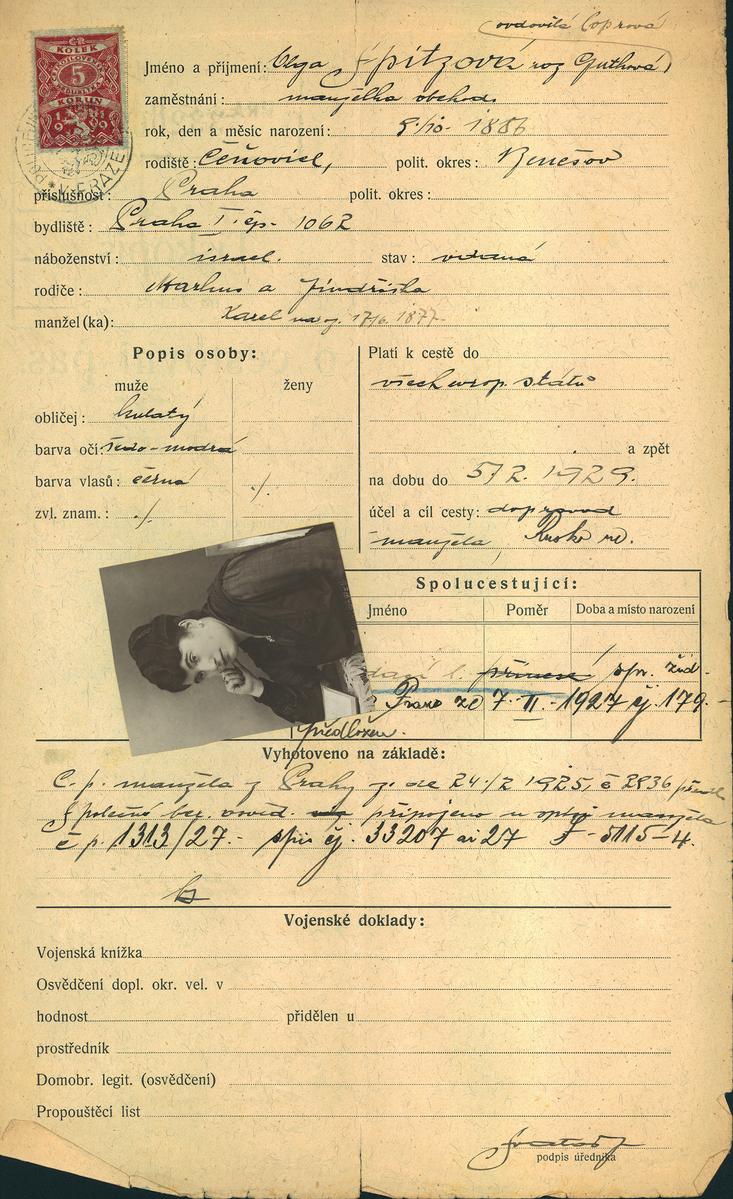 ovdovělá Coprová
KOLEK
ČESKOSLOVENSKÁ REPUBLIKA
5
KORUN
1919
V PRAZE
Jméno a příjmení: Olga Spitzová roz Guthová
zaměstnání: manželka obchod.
rok, den a měsíc narození: 9./10. 1886
rodiště: Čeňovice, polit. okres: Benešov
příslušnost: Praha polit. okres:
bydliště: Praha I. čp. 1062
náboženství: israel. stav: vdaná
rodiče: Markus a Jindřiška
manžel (ka): Karel nar. 17/6. 1877
Popis osoby:
muže ženy
obličej: kulatý
barva očí: šedo-modrá
barva vlasů: černá ./.
zvl. znam.: ./.
Platí k cestě do
všech evrop. států
a zpět
na dobu do 5/2. 1929.
účel a cíl cesty: doprovod
manžela
Spolucestující:
Jméno Poměr Doba a místo narození
Praze ze 7. II. 1927 čj. 179.-
předložen.
Vyhotoveno na základě:
C. p. manžela z Prahy z. de 24./2 1925, č 2836
Společné bez. osvěd. připojeno u manžela
č p. 1313/27.- spis čj. 33207 ai 27 S-5115-4.
Vojenské doklady:
Vojenská knížka
Osvědčení dopl. okr. vel. v
hodnost přidělen u
prostředník
Domobr. legit. (osvědčení)
Propouštěcí list
podpis úředníka